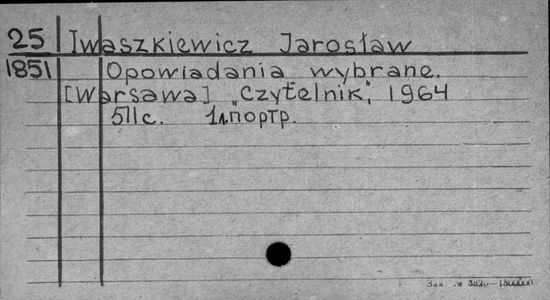 25 Iwaszkiewicz Jarosław
1851 Opowiadania wybrane.
[Warsawa] „Czytelnik", 1964
511c. 1л.портр.
Зак. № 3820—1500000